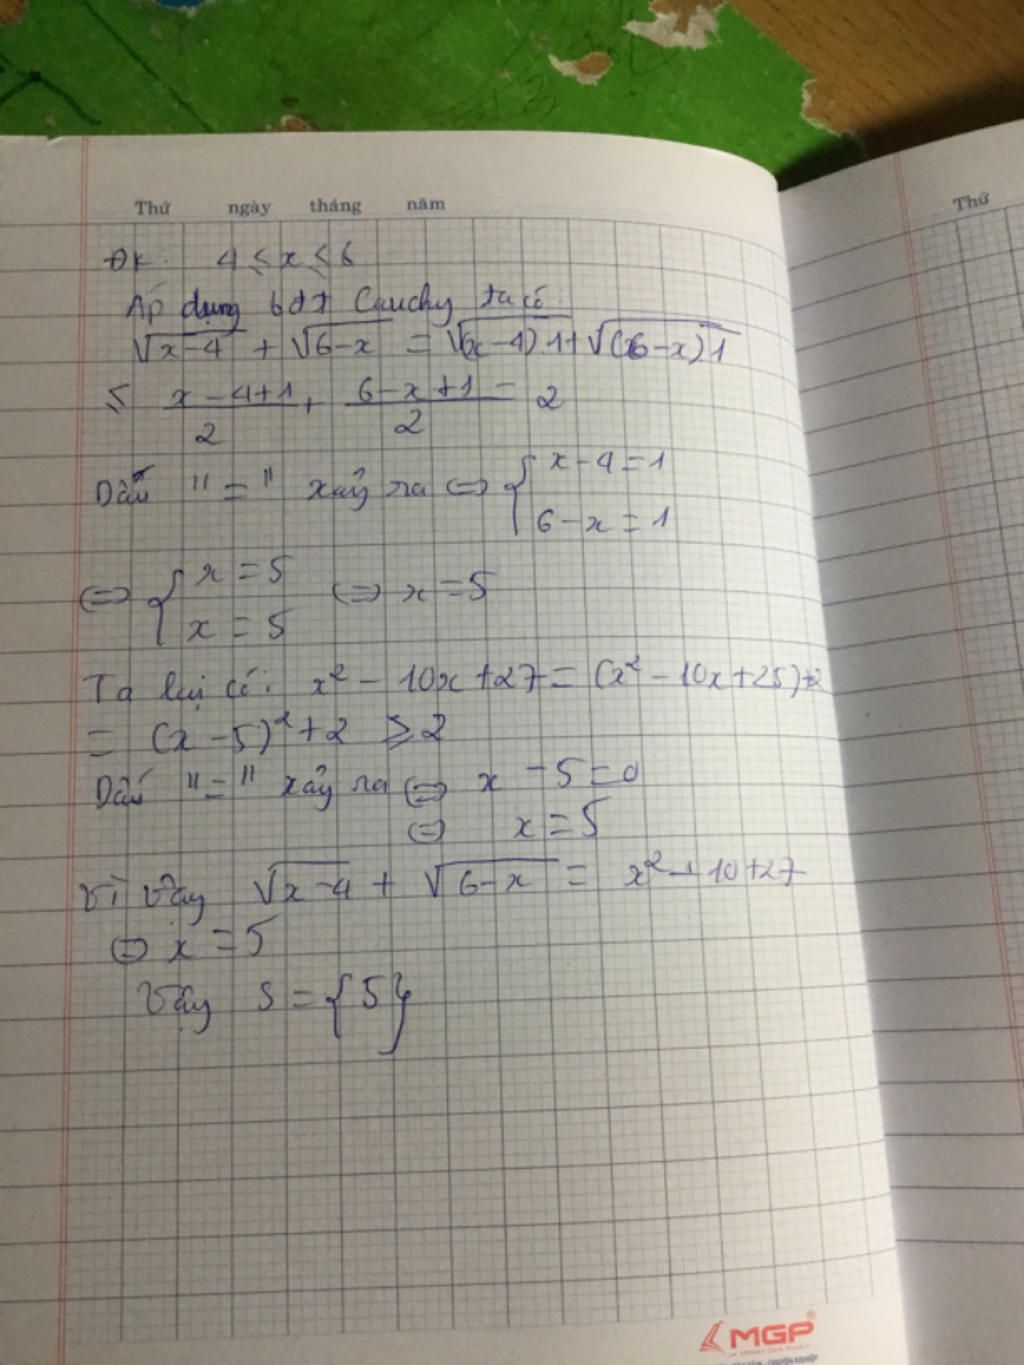 Thứ ngày tháng năm
Thứ
ĐK: 4 ≤ x ≤ 6
Áp dụng bđt Cauchy ta có:
√(x-4) + √(6-x) = √((x-4).1) + √((6-x)1)
≤ (x-4+1)/2 + (6-x+1)/2 = 2
Dấu "=" xảy ra ⇔ { x-4=1
6-x=1
⇔ { x=5 ⇔ x=5
x=5
Ta lại có: x² - 10x+27 = (x² - 10x+25)+2
= (x-5)²+2 ≥ 2
Dấu "=" xảy ra ⇔ x-5=0
⇔ x=5
Vì vậy √(x-4) + √(6-x) = x² - 10+27
⇔ x=5
Vậy S = {5}
MGP